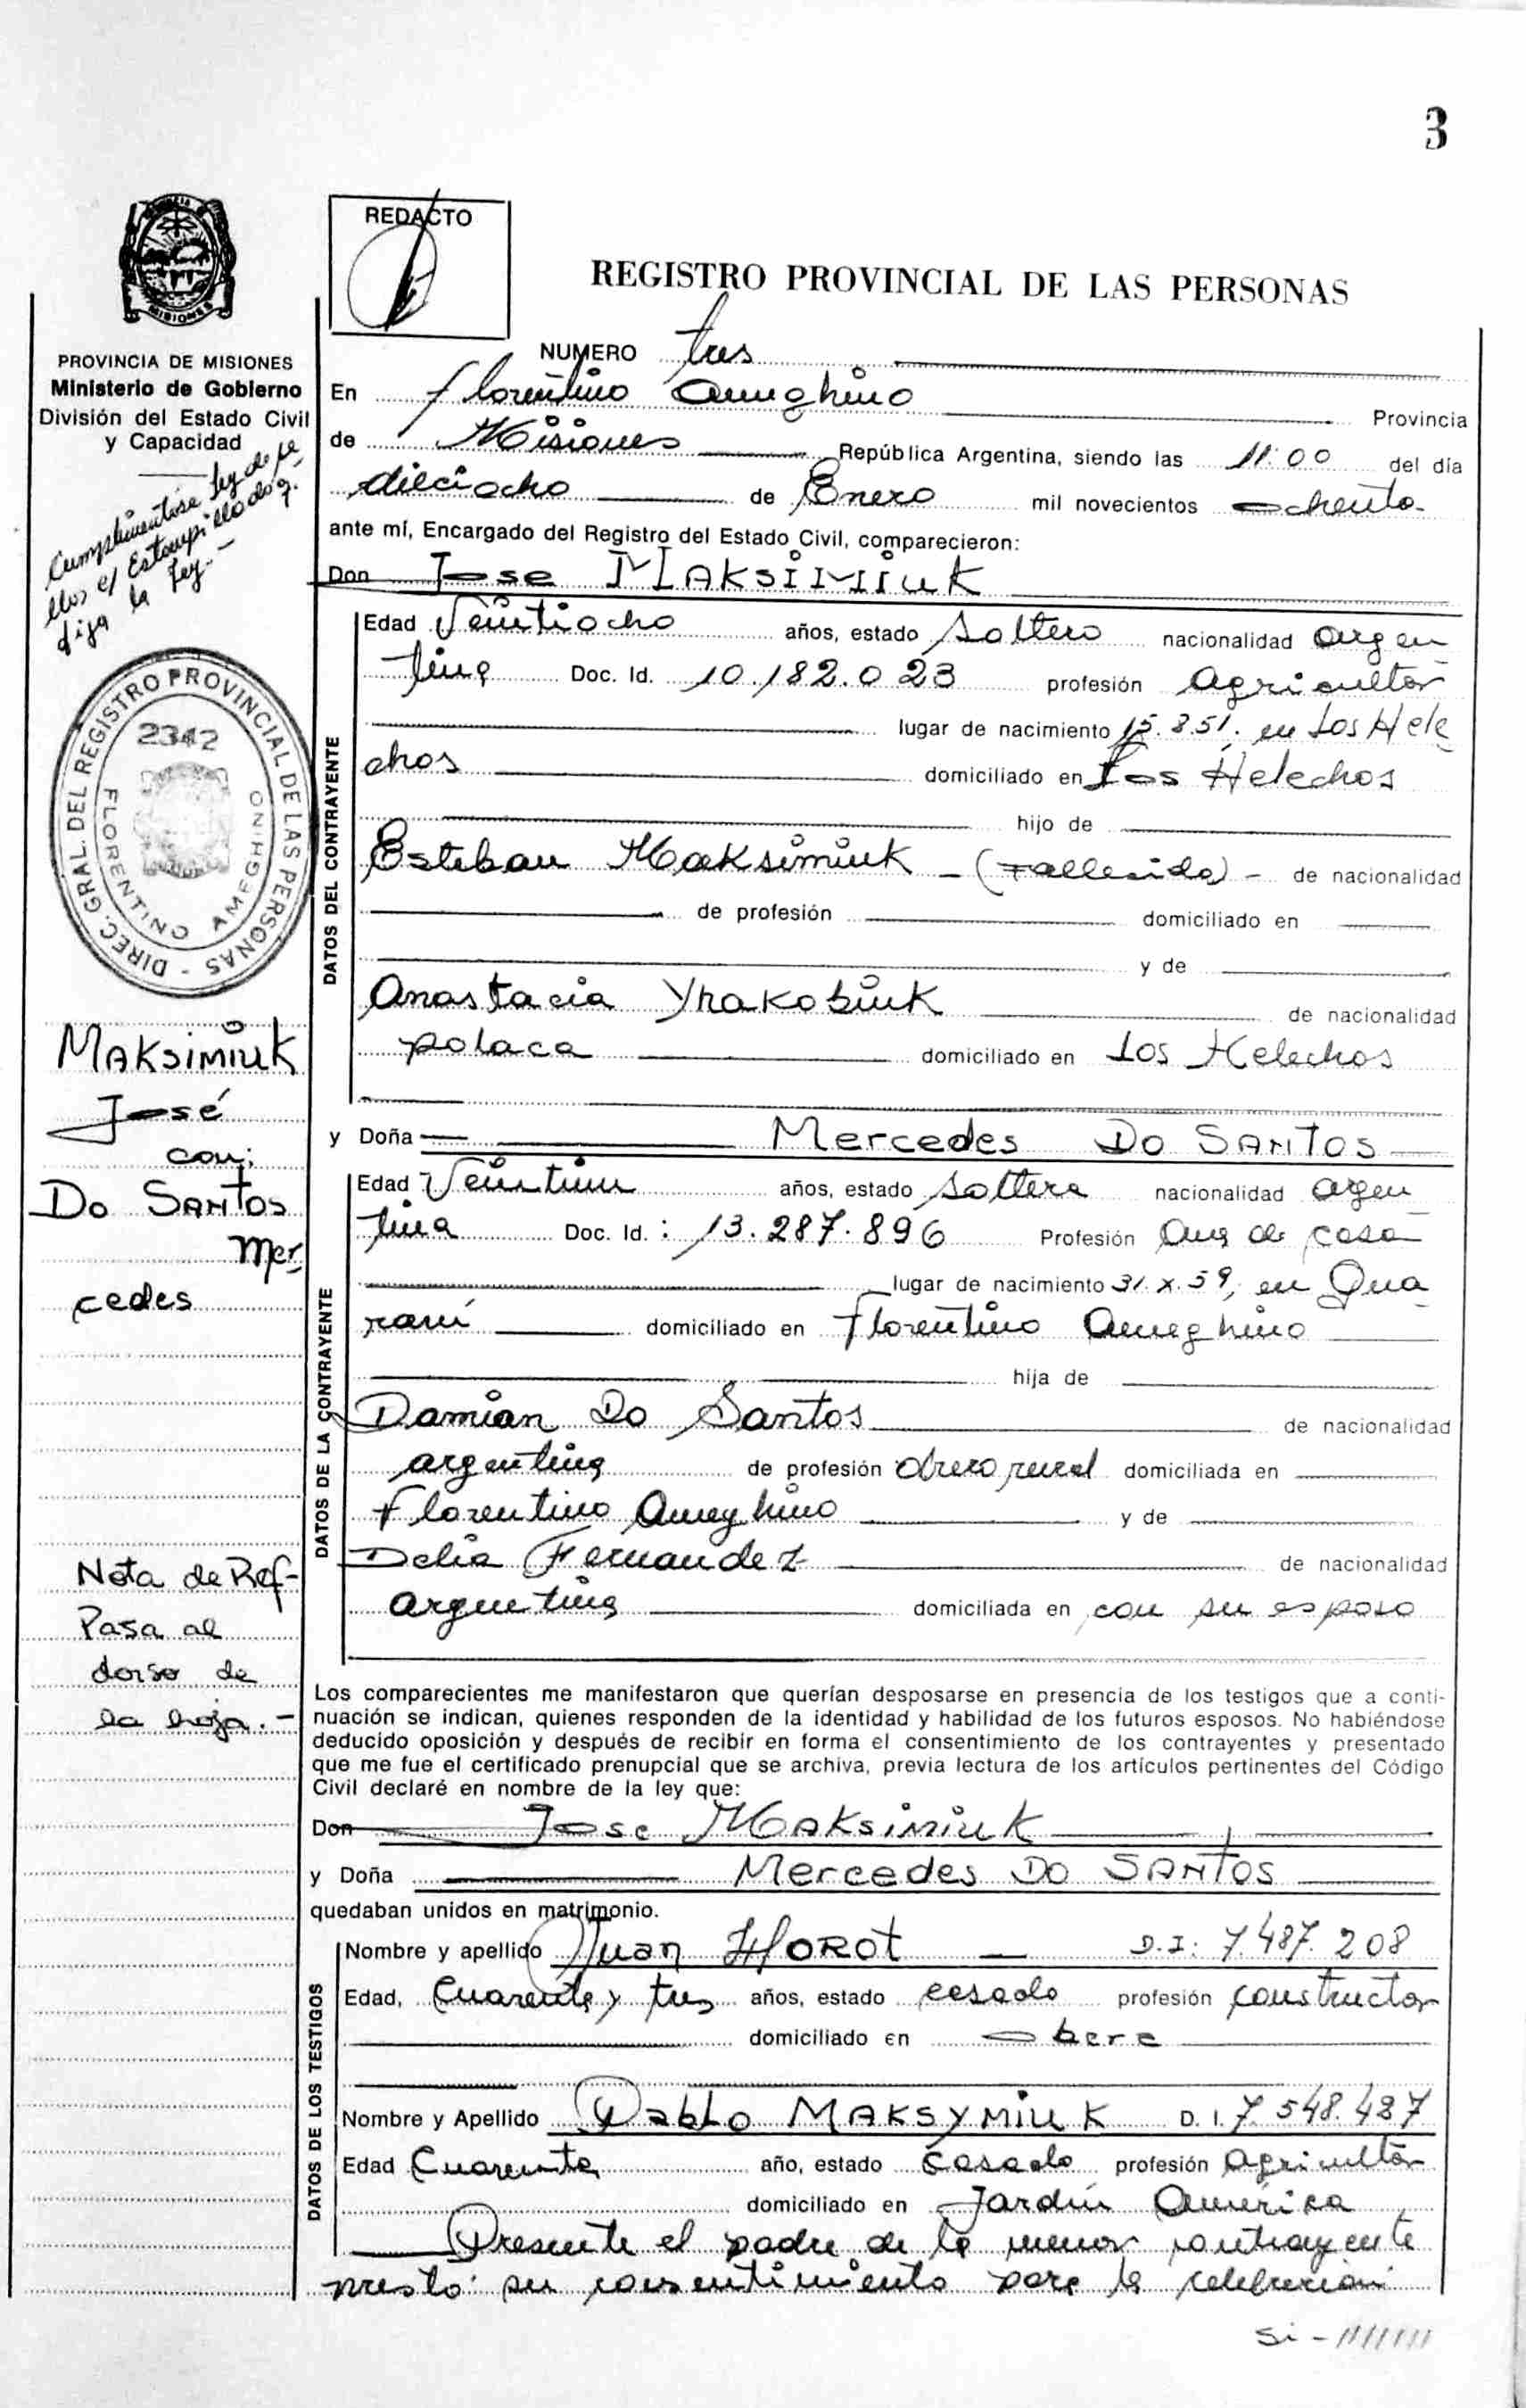 3
MISIONES
REDACTO
REGISTRO PROVINCIAL DE LAS PERSONAS
PROVINCIA DE MISIONES
Ministerio de Gobierno
División del Estado Civil
y Capacidad
Cumplimentóse ley de se
llos c/ Estampillado q.
fija la Ley.-
DIREC. GRAL. DEL REGISTRO PROVINCIAL DE LAS PERSONAS -
2342
FLORENTINO AMEGHINO
MAKSIMIUK
José
con:
Do SANTOS
Mer
cedes
Nota de Ref-
Pasa al
dorso de
la hoja.-
NUMERO tres
En Florentino Ameghino Provincia
de Misiones República Argentina, siendo las 11:00 del día
dieciocho de Enero mil novecientos ochenta-
ante mí, Encargado del Registro del Estado Civil, comparecieron:
Don Jose MAKSIMIUK
DATOS DEL CONTRAYENTE
Edad Veintiocho años, estado Soltero nacionalidad argen
tina Doc. Id. 10.182.023 profesión agricultor
lugar de nacimiento 15.8.51. en Los Hele
chos domiciliado en Los Helechos
hijo de
Esteban Maksimiuk - (Fallecido) - de nacionalidad
de profesión domiciliado en
y de
Anastacia Yrakobiuk de nacionalidad
polaca domiciliado en Los Helechos
y Doña Mercedes Do SANTOS
DATOS DE LA CONTRAYENTE
Edad Veintiun años, estado Soltera nacionalidad argen
tina Doc. Id. : 13.287.896 Profesión Ama de casa
lugar de nacimiento 31.X.59, en Gua
raní domiciliado en Florentino Ameghino
hija de
Damián Do Santos de nacionalidad
argentina de profesión obrero rural domiciliada en
Florentino Ameghino y de
Delia Fernandez de nacionalidad
argentina domiciliada en con su esposo
Los comparecientes me manifestaron que querían desposarse en presencia de los testigos que a conti-
nuación se indican, quienes responden de la identidad y habilidad de los futuros esposos. No habiéndose
deducido oposición y después de recibir en forma el consentimiento de los contrayentes y presentado
que me fue el certificado prenupcial que se archiva, previa lectura de los artículos pertinentes del Código
Civil declaré en nombre de la ley que:
Don Jose Maksimiuk
y Doña Mercedes Do SANTOS
quedaban unidos en matrimonio.
DATOS DE LOS TESTIGOS
Nombre y apellido Juan HOROT D.I: 7.487.208
Edad, Cuarenta y tres años, estado casado profesión constructor
domiciliado en obera
Nombre y Apellido Pablo MAKSYMIUK D.I. 7.548.487
Edad Cuarenta año, estado Casado profesión Agricultor
domiciliado en Jardín América
Presente el padre de la menor contrayente
prestó su consentimiento para la celebración
si-